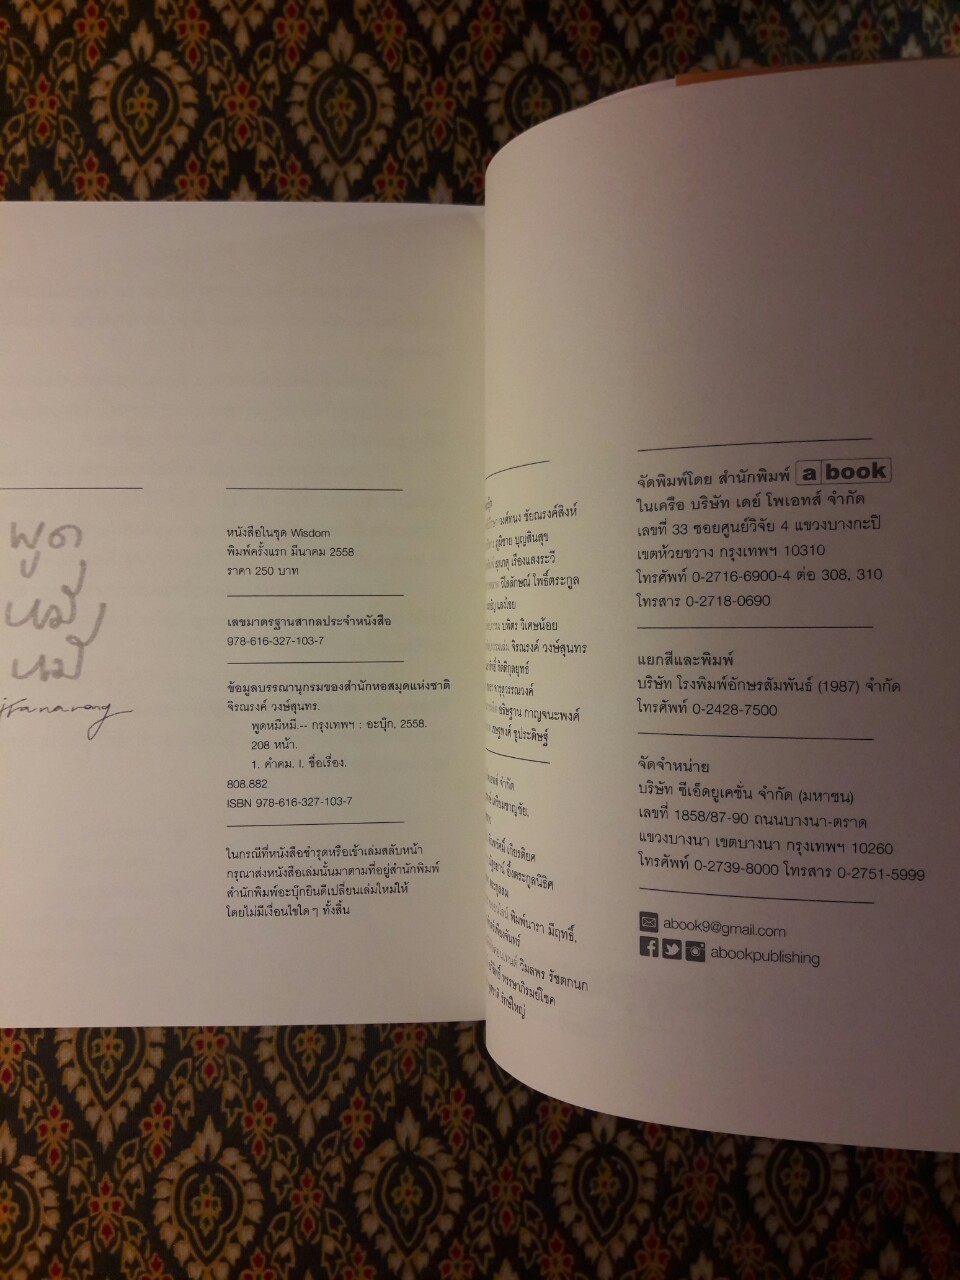 พูด
หมี
หมี
หนังสือในชุด Wisdom
พิมพ์ครั้งแรก มีนาคม 2558
ราคา 250 บาท
เลขมาตรฐานสากลประจำหนังสือ
978-616-327-103-7
ข้อมูลบรรณานุกรมของสำนักหอสมุดแห่งชาติ
จิรณรงค์ วงษ์สุนทร.
พูดหมีหมี.-- กรุงเทพฯ : อะบุ๊ก, 2558.
208 หน้า.
1. คำคม. I. ชื่อเรื่อง.
808.882
ISBN 978-616-327-103-7
ในกรณีที่หนังสือชำรุดหรือเข้าเล่มสลับหน้า
กรุณาส่งหนังสือเล่มนั้นมาตามที่อยู่สำนักพิมพ์
สำนักพิมพ์อะบุ๊กยินดีเปลี่ยนเล่มใหม่ให้
โดยไม่มีเงื่อนไขใดๆ ทั้งสิ้น
วงศ์ทนง ชัยณรงค์สิงห์
ภูมิชาย บุญสินสุข
เรืองแสงระวี
วิไลลักษณ์ โพธิ์ตระกูล
แสงไชย
บพิตร วิเศษน้อย
จิรณรงค์ วงษ์สุนทร
กิตติกุลยุทธ์
จารุสุวรรณวงค์
อธิษฐาน กาญจนะพงศ์
ชูประดิษฐ์
จำกัด
เตรียมชาญชัย,
เกียรติยศ
อึ้งตระกูลนิธิศ
พิมพ์นารา มีฤทธิ์,
วิมลพร รัชตกนก
พรรษาภิรมย์โชค
รักษ์ใหญ่
จัดพิมพ์โดย สำนักพิมพ์ a book
ในเครือ บริษัท เดย์ โพเอทส์ จำกัด
เลขที่ 33 ซอยศูนย์วิจัย 4 แขวงบางกะปิ
เขตห้วยขวาง กรุงเทพฯ 10310
โทรศัพท์ 0-2716-6900-4 ต่อ 308, 310
โทรสาร 0-2718-0690
แยกสีและพิมพ์
บริษัท โรงพิมพ์อักษรสัมพันธ์ (1987) จำกัด
โทรศัพท์ 0-2428-7500
จัดจำหน่าย
บริษัท ซีเอ็ดยูเคชั่น จำกัด (มหาชน)
เลขที่ 1858/87-90 ถนนบางนา-ตราด
แขวงบางนา เขตบางนา กรุงเทพฯ 10260
โทรศัพท์ 0-2739-8000 โทรสาร 0-2751-5999
abook9@gmail.com
abookpublishing